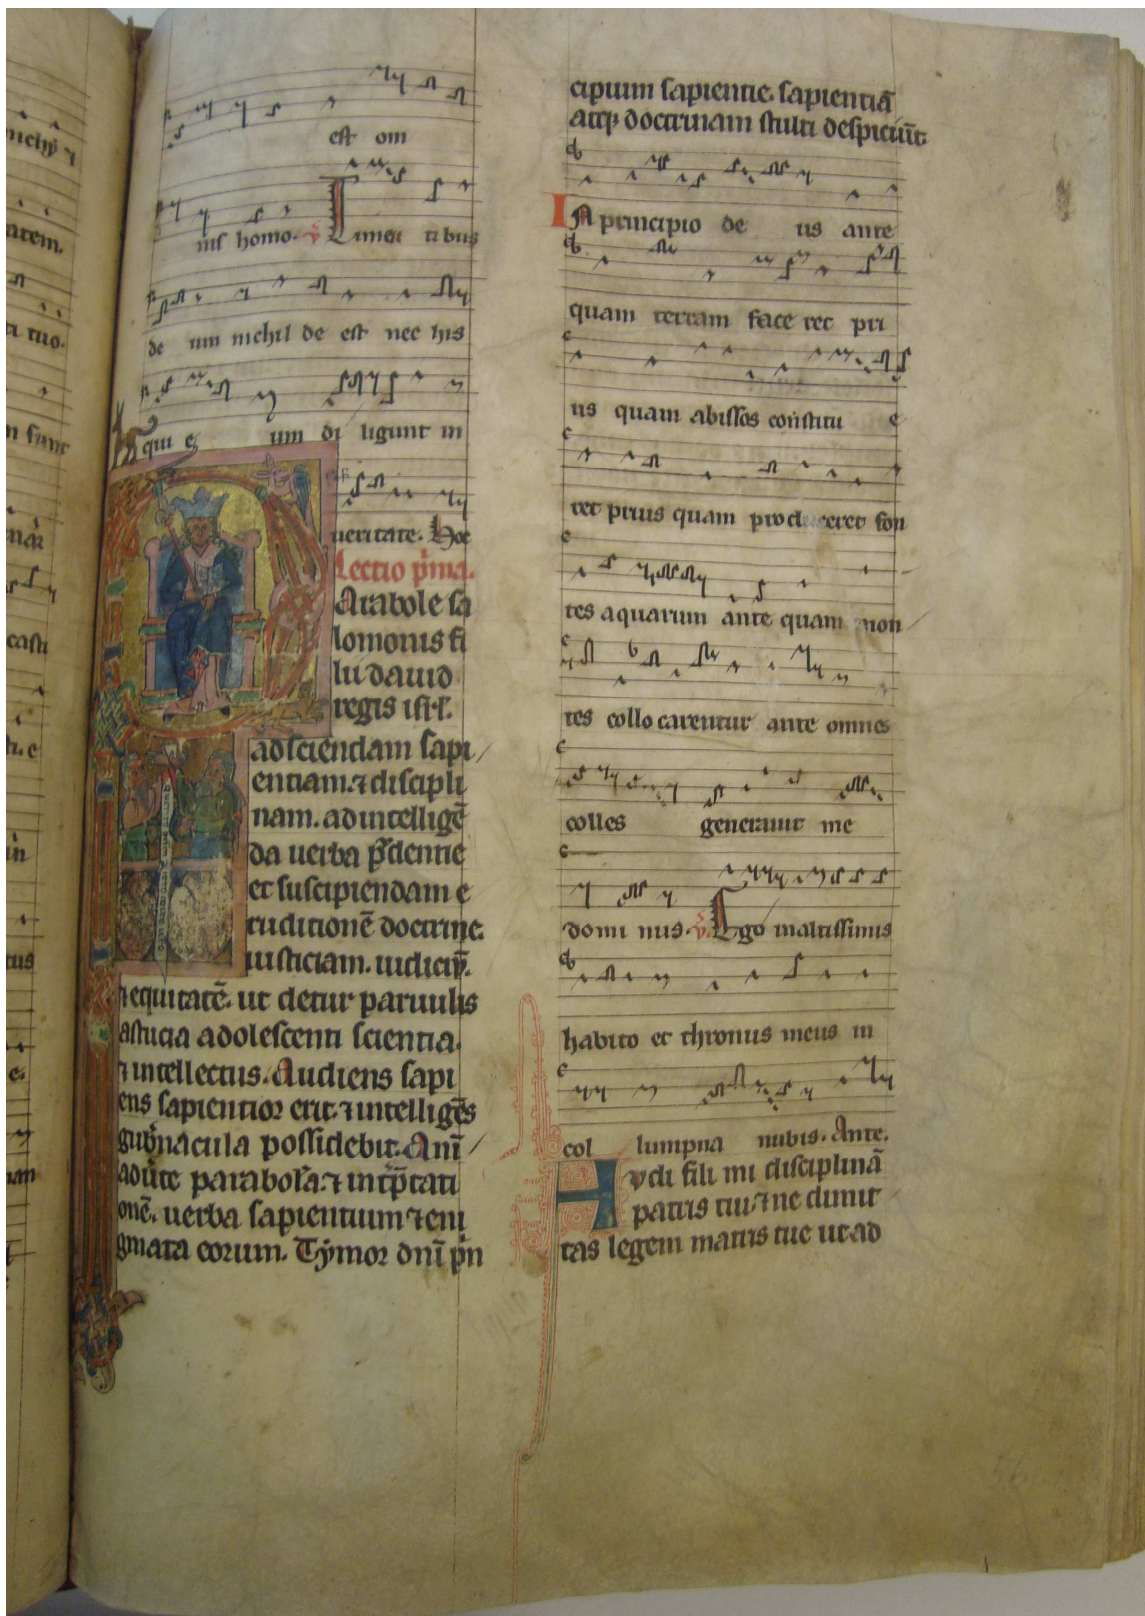 est om
nis homo. ℣ Timen tibus
de um nichil de est nec his
qui e um di ligunt in
ueritate. Hoc
Lectio p̄ma.
Arabole sa
lomonis fi
lii dauid
regis isrl̄.
ad sciendam sapi
entiam. ⁊ discipli
nam. ad intelligē
da uerba p̄dentie
et suscipiendam e
ruditionē doctrine.
iusticiam. iudiciū.
⁊ equitatē. ut detur paruulis
astucia adolescenti scientia.
⁊ intellectus. Audiens sapi
ens sapientior erit. ⁊ intelligēs
gub̄nacula possidebit. Anī
aduerte parabolā. ⁊ int̄p̄tati
onē. uerba sapientium ⁊ eni
gmata eorum. Tymor dn̄i p̄n
cipium sapientie. sapientiā
atq; doctrinam stulti despiciūt.
IN principio de us ante
quam terram face ret pri
us quam abissos constitu e
ret prius quam produceret fon
tes aquarum ante quam mon
tes collo carentur ante omnes
colles generauit me
domi nus. ℣. Ego in altissimis
habito et thronus meus in
col lumpna nubis. Ante.
Audi fili mi disciplinā
patris tui. ⁊ ne dimit
tas legem matris tue ut ad
56